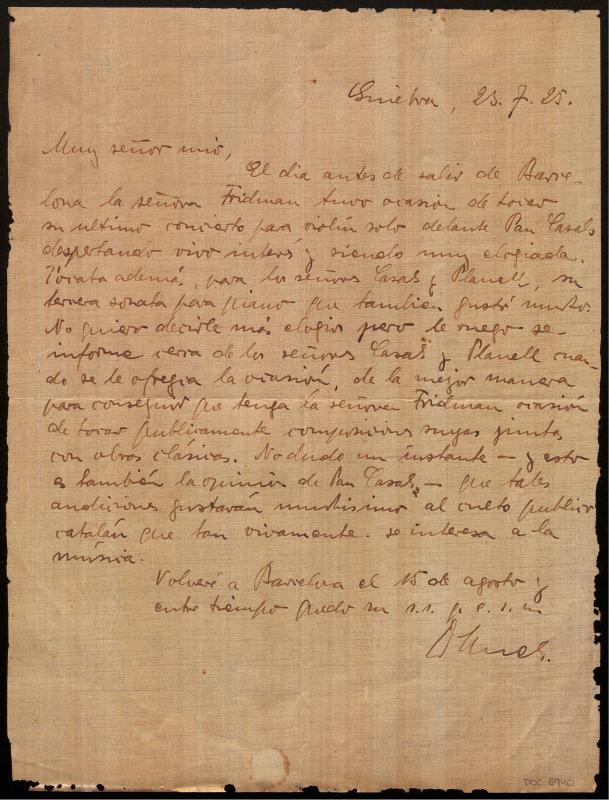 Ginebra, 23.7.25.
Muy señor mio,
El dia antes de salir de Barce-
lona la señora Fridman tuvo ocasión de tocar
su ultimo concierto para violín solo delante Pau Casals
despertando vivo interés y siendo muy elogiada.
Tócata además, para los señores Casals y Planell, su
tercera sonata para piano que también gustó mucho.
No quiero decirle más elogios pero le ruego se
informe cerca de los señores Casals y Planell cuan-
do se le ofrezia la ocasión, de la mejor manera
para conseguir que tenga la señora Fridman ocasión
de tocar publicamente composiciones suyas juntas
con obras clásicas. No dudo un instante — y esto
es también la opinión de Pau Casals, — que tales
audiciones gustarán muchisimo al culto publico
catalán que tan vivamente se interesa a la
música.
Volveré a Barcelona el 15 de agosto y
entre tiempo quedo su s.s. q. e. s. m.
DOC 6940